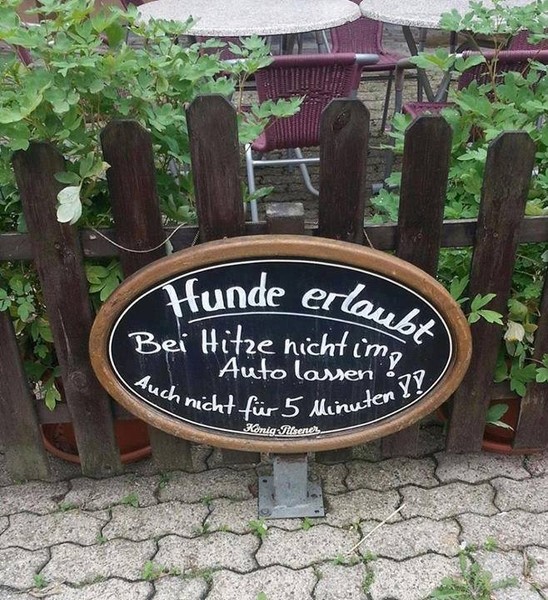 Hunde erlaubt
Bei Hitze nicht im
Auto lassen !
Auch nicht für 5 Minuten !!
König-Pilsener